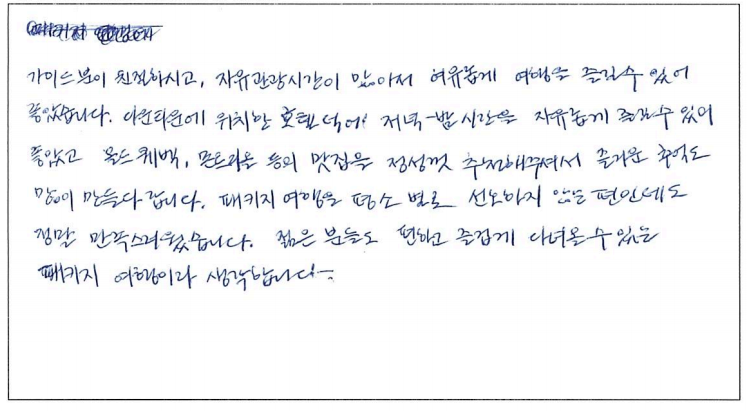 가이드분이 친절하시고, 자유관광시간이 많아서 여유롭게 여행을 즐길수 있어
좋았습니다. 다운타운에 위치한 호텔 덕에 저녁-밤 시간을 자유롭게 즐길수 있어
좋았고 올드퀘벡, 몬트리올 등의 맛집을 정성껏 추천해주셔서 즐거운 추억도
많이 만들다 갑니다. 패키지 여행을 평소 별로 선호하지 않는 편인데도
정말 만족스러웠습니다. 젊은 분들도 편하고 즐겁게 다녀올 수 있는
패키지 여행이라 생각합니다-